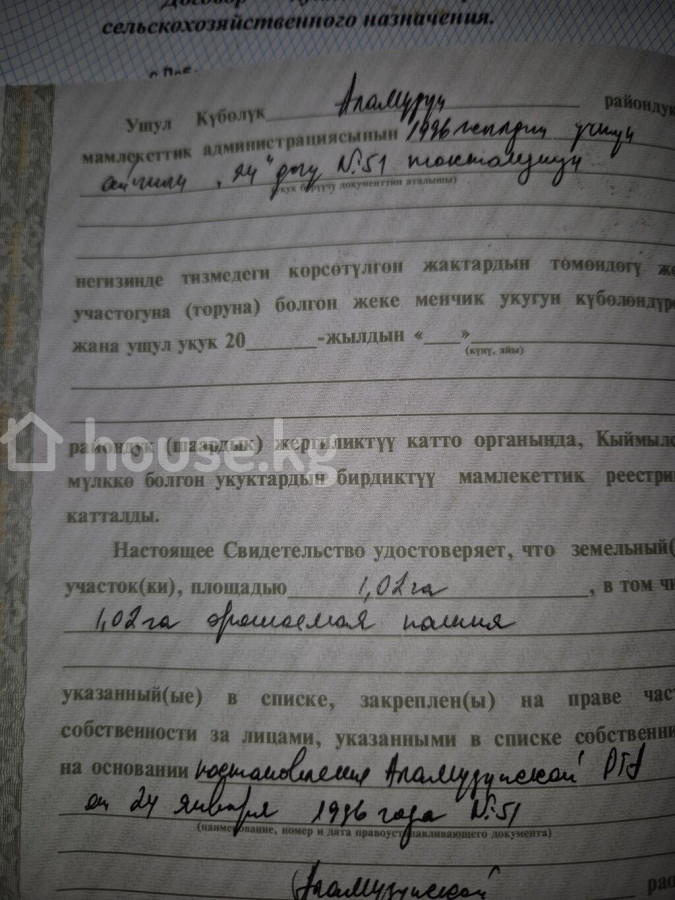 Договор
сельскохозяйственного назначения.
Ушул Күбөлүк Аламүдүн райондук
мамлекеттик администрациясынын 1996
айы "24" №:51
негизинде тизмедеги көрсөтүлгөн жактардын төмөндөгү же
участогуна (торуна) болгон жеке менчик укугун күбөлөндүр
жана ушул укук 20 -жылдын « »
(күнү, айы)
house.kg
райондук (шаардык) жергиликтүү катто органында, Кыймылс
мүлккө болгон укуктардын бирдиктүү мамлекеттик реестри
катталды.
Настоящее Свидетельство удостоверяет, что земельный(
участок(ки), площадью 1,02 га , в том чи
1,02 га орошаемая пашня
указанный(ые) в списке, закреплен(ы) на праве част
собственности за лицами, указанными в списке собственни
на основании постановления Аламудунской РГА
от 24 января 1996 года №:51
(наименование, номер и дата правоустанавливающего документа)
Аламудунской рай